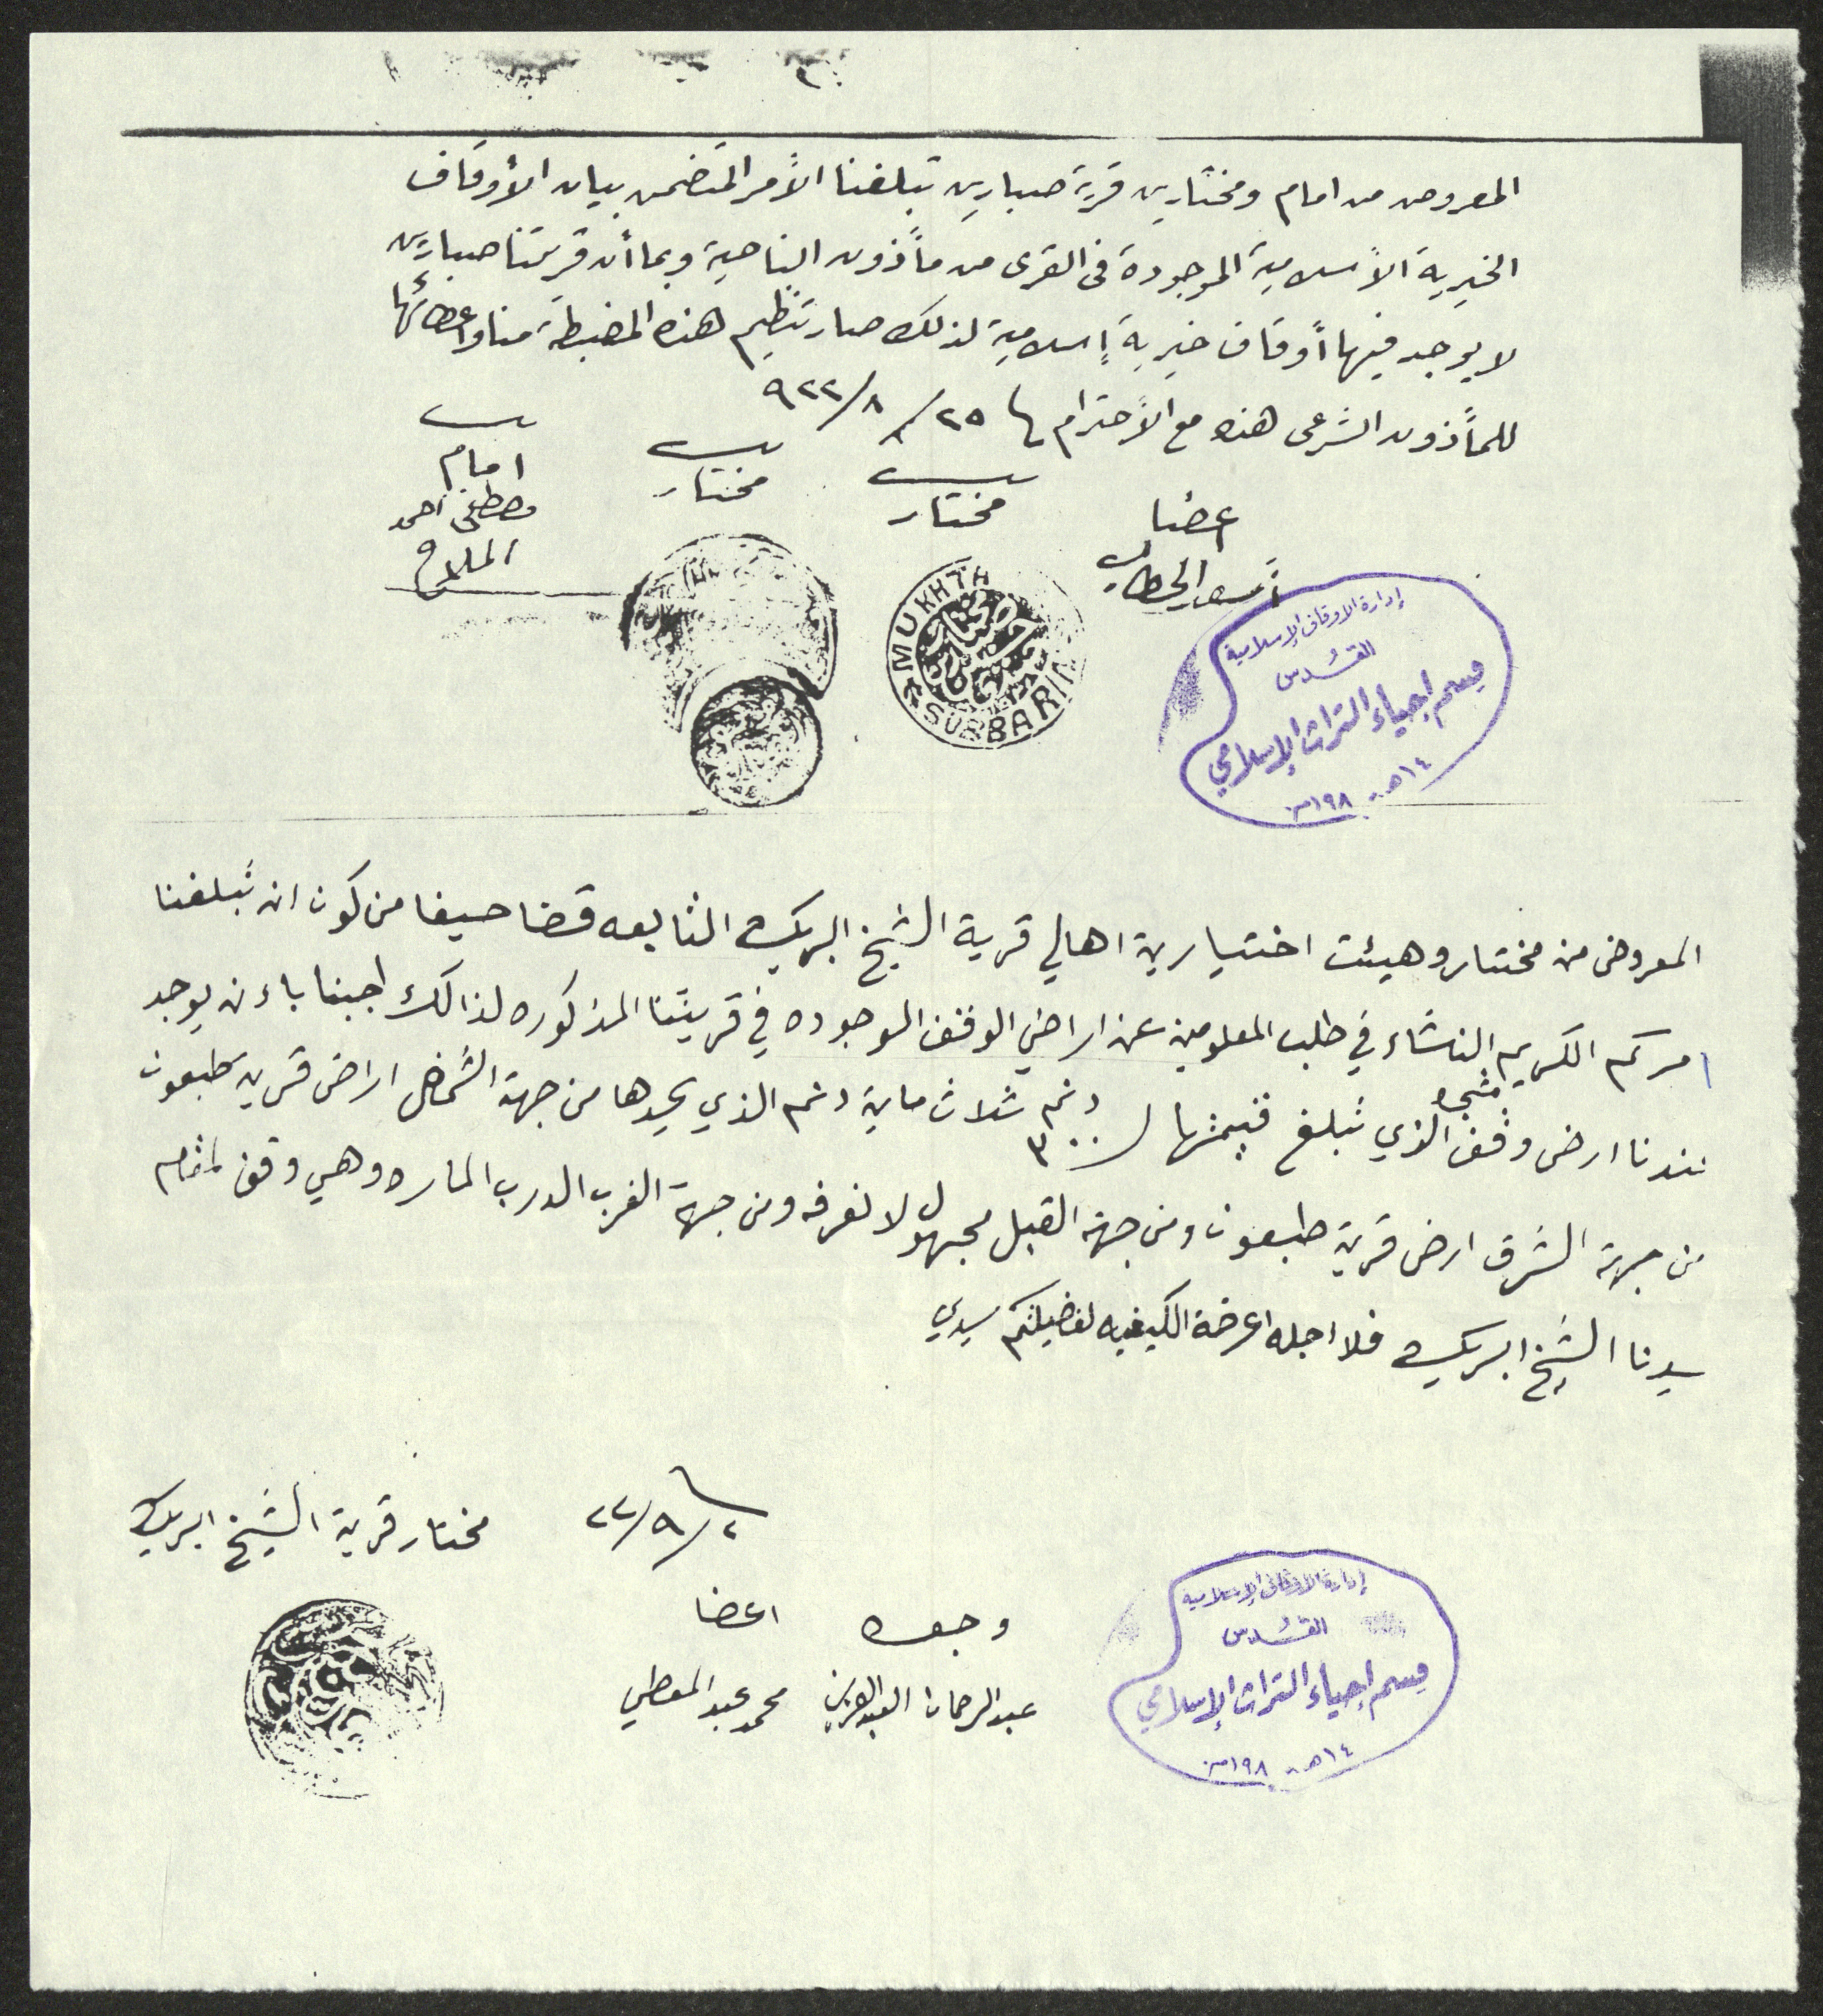 المعروض من امام ومختارين قرية صبارين تبلغنا الأمر المتضمن بيان الأوقاف
الخيرية الأسلامية الموجودة فى القرى من مأذون الناحية وبما أن قريتنا صبارين
لا يوجد فيها أوقاف خيرية إسلامية لذلك صار تنظيم هذه المضبطة منا واعطائها
للمأذون الشرعى هذه مع الأحترام ٢٥/٨/٩٢٢
اعضا
أسعد الخطاب
مختار
مختار
امام
مصطفى احمد
الملاح
MUKHTA
SUBBARIN
إدارة الاوقاف الإسلامية
القدس
قسم إحياء التراث الإسلامي
١٤هـ - ١٩٨م
المعروض من مختار وهيئت اختيارية اهالي قرية الشيخ ابريك التابعه قضا حيفا من كون انه تبلغنا
امركم الكريم النشاء في طلب المعلومين عن اراضي الوقف الموجوده في قريتنا المذكوره لذالك اجبنا باءن يوجد
عندنا ارض وقف الذي تبلغ قيمتها ٣٠٠ دنم ثلاث ماية دنم الذي يحدها من جهة الشمال اراضى قرية طبعون
من جهة الشرق ارض قرية طبعون ومن جهة القبل مجهول لا نعرفه ومن جهة الغرب الدرب الماره وهي وقف لمقام
سيدنا الشيخ ابريك فلاجله اعرضة الكيفيه لفضيلتكم سيدي
٢/٩/٢٢
مختار قرية الشيخ ابريك
اعضا
محمد عبد المعطي
عبد الرحمان العبد العزيز
إدارة الاوقاف الإسلامية
القدس
قسم إحياء التراث الإسلامي
١٤هـ - ١٩٨م